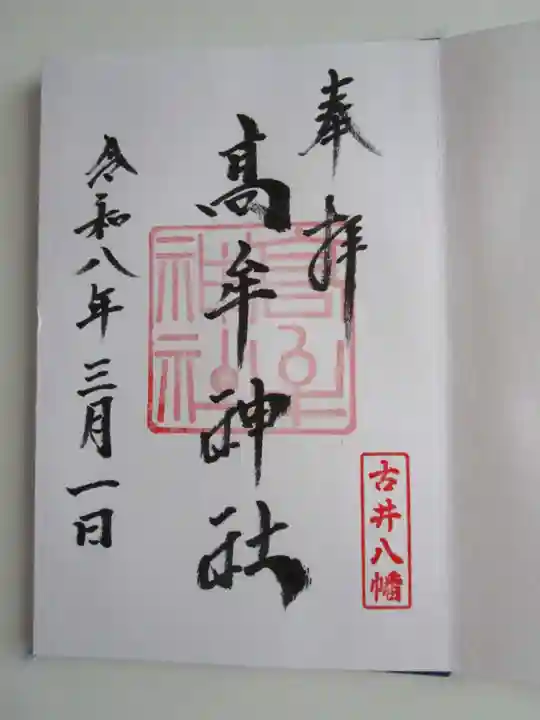 奉拝
古井八幡
高牟神社
令和八年三月一日